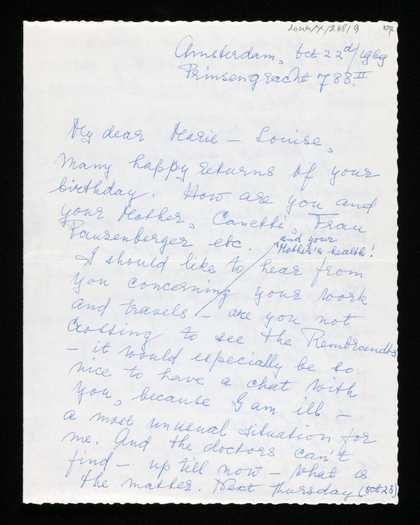 Amsterdam, Oct 22d/1969
Prinsengracht 788.II
My dear Marie-Louise,
many happy returns of your
birthday. How are you and
your Mother, Canetti, Frau
etc. and your
Mother's health!
I should like to hear from
you concerning your work
and travels – are you not
crossing to see the Rembrandts
– it would especially be so
nice to have a chat with
you, because I am ill –
a most unusual situation for
me. And the doctors can't
find – up till now – what is
the matter. Next Thursday (Oct 23)